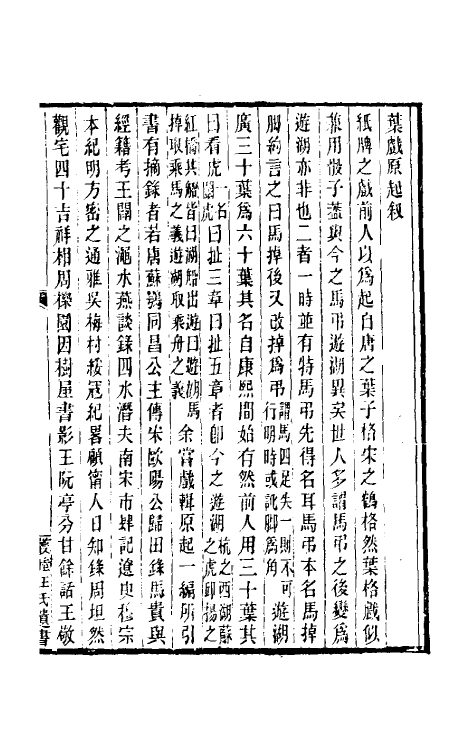 葉戲原起敘
紙牌之戲前人以爲起自唐之葉子格宋之鶴格然葉格戲似
兼用骰子蓋與今之馬弔遊湖異矣世人多謂馬弔之後變爲
遊湖亦非也二者一時並有特馬弔先得名耳馬弔本名馬掉
腳約言之曰馬掉後又改掉爲弔謂馬四足失一則不可行明時或訛腳爲角遊湖
廣三十葉爲六十葉其名自康熙間始有然前人用三十葉其
曰看虎一名鬭虎曰扯三章曰扯五章者卽今之遊湖杭之西湖蘇之虎卽揚之
紅橋其船皆曰湖船出遊曰遊湖馬掉取乘馬之義遊湖取乘舟之義余嘗戲輯原起一編所引
書有摘錄者若唐蘇鶚同昌公主傳宋歐陽公歸田錄馬貴與
經籍考王闢之澠水燕談錄四水潛夫南宋市肆記遼史穆宗
本紀明方密之通雅吳梅村綏寇紀畧顧甯人日知錄周坦然
觀宅四十吉祥相周櫟園因樹屋書影王阮亭分甘餘話王敬
王氏遺書